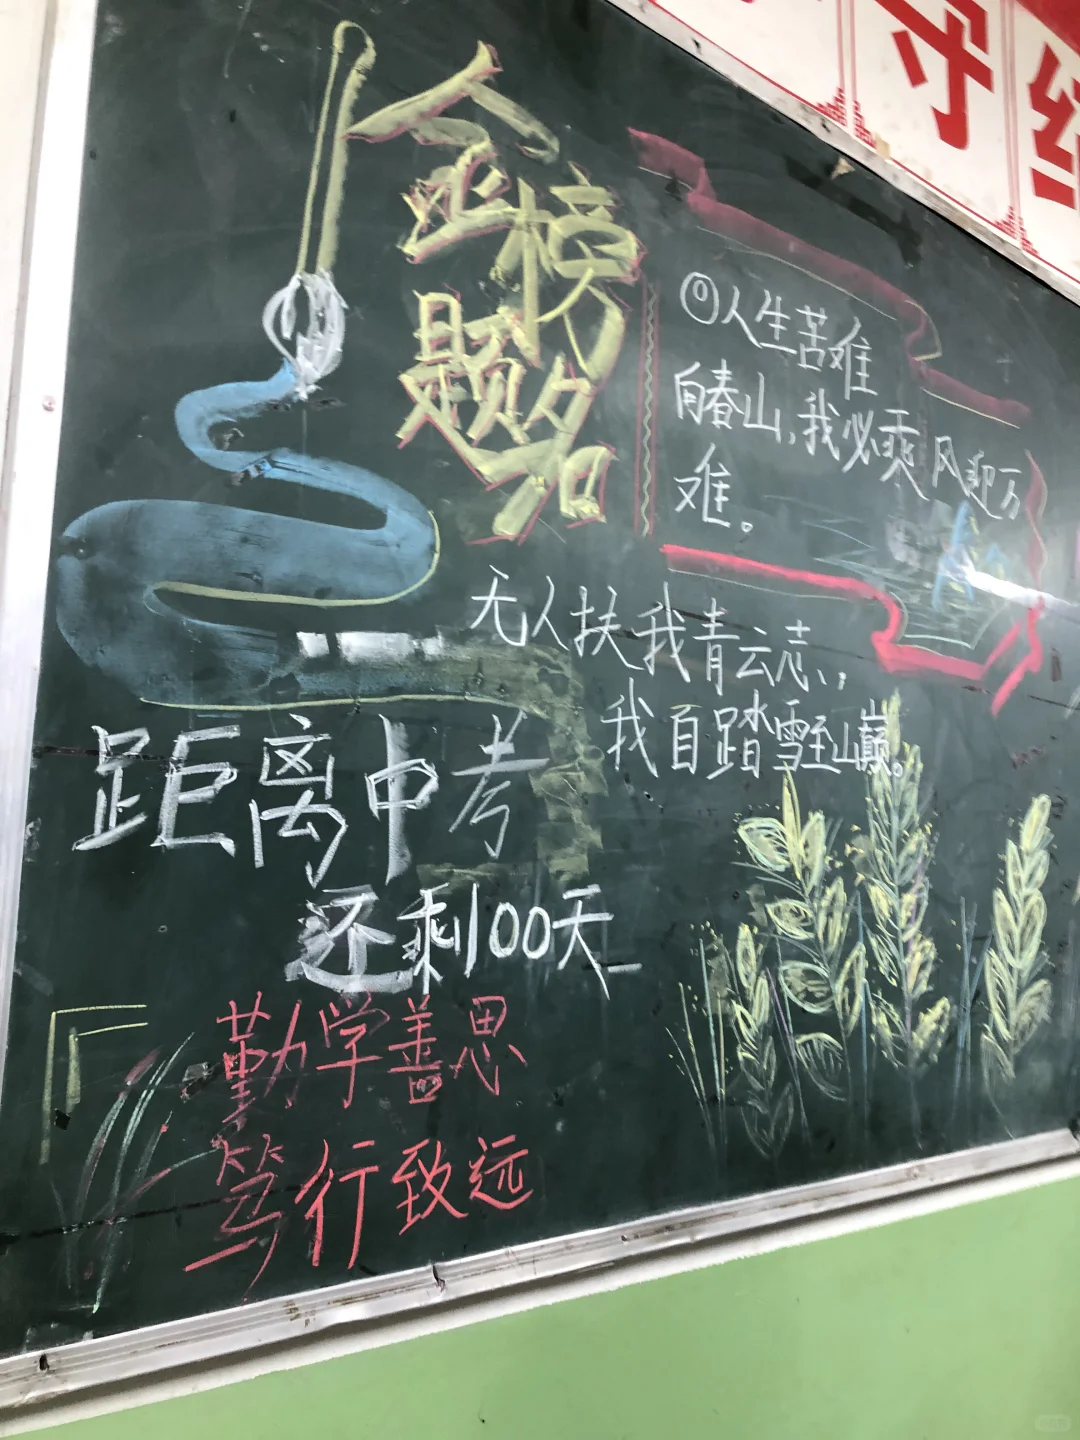 守纪
金榜
题名
◎人生苦难
向春山,我必乘风迎万
难。
无人扶我青云志,
我自踏雪至山巅。
距离中考
还剩100天
勤学善思
笃行致远